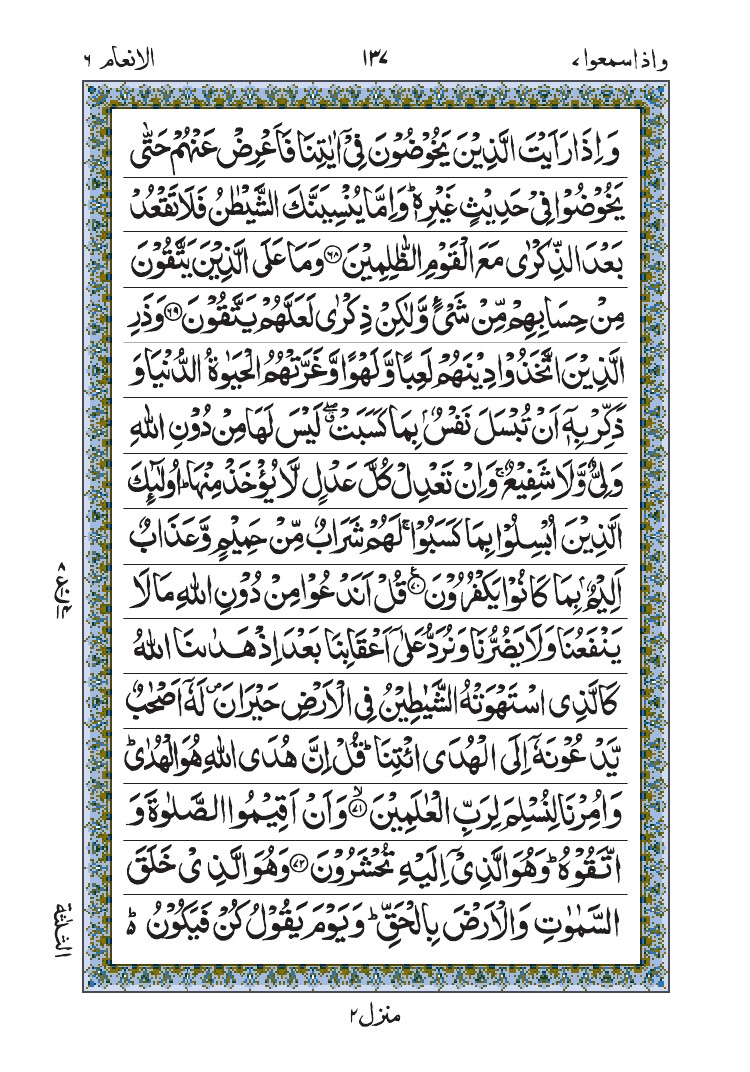 واذاسمعوا ۷ ۱۳۷ الانعام ۶
وَاِذَا رَاَيْتَ الَّذِيْنَ يَخُوْضُوْنَ فِيْۤ اٰيٰتِنَا فَاَعْرِضْ عَنْهُمْ حَتّٰى
يَخُوْضُوْا فِيْ حَدِيْثٍ غَيْرِهٖ ؕ وَاِمَّا يُنْسِيَنَّكَ الشَّيْطٰنُ فَلَا تَقْعُدْ
بَعْدَ الذِّكْرٰى مَعَ الْقَوْمِ الظّٰلِمِيْنَ ﴿۶۸﴾ وَمَا عَلَى الَّذِيْنَ يَتَّقُوْنَ
مِنْ حِسَابِهِمْ مِّنْ شَيْءٍ وَّلٰكِنْ ذِكْرٰى لَعَلَّهُمْ يَتَّقُوْنَ ﴿۶۹﴾ وَذَرِ
الَّذِيْنَ اتَّخَذُوْا دِيْنَهُمْ لَعِبًا وَّلَهْوًا وَّغَرَّتْهُمُ الْحَيٰوةُ الدُّنْيَا وَ
ذَكِّرْ بِهٖۤ اَنْ تُبْسَلَ نَفْسٌۢ بِمَا كَسَبَتْ ۖۗ لَيْسَ لَهَا مِنْ دُوْنِ اللّٰهِ
وَلِيٌّ وَّلَا شَفِيْعٌ ۚ وَاِنْ تَعْدِلْ كُلَّ عَدْلٍ لَّا يُؤْخَذْ مِنْهَا ؕ اُولٰٓئِكَ
الَّذِيْنَ اُبْسِلُوْا بِمَا كَسَبُوْا ۚ لَهُمْ شَرَابٌ مِّنْ حَمِيْمٍ وَّعَذَابٌ
اَلِيْمٌۢ بِمَا كَانُوْا يَكْفُرُوْنَ ﴿۷۰﴾ قُلْ اَنَدْعُوْا مِنْ دُوْنِ اللّٰهِ مَا لَا
يَنْفَعُنَا وَلَا يَضُرُّنَا وَنُرَدُّ عَلٰۤى اَعْقَابِنَا بَعْدَ اِذْ هَدٰىنَا اللّٰهُ
كَالَّذِى اسْتَهْوَتْهُ الشَّيٰطِيْنُ فِى الْاَرْضِ حَيْرَانَ ۪ لَهٗۤ اَصْحٰبٌ
يَّدْعُوْنَهٗۤ اِلَى الْهُدَى ائْتِنَا ؕ قُلْ اِنَّ هُدَى اللّٰهِ هُوَ الْهُدٰى ؕ
وَاُمِرْنَا لِنُسْلِمَ لِرَبِّ الْعٰلَمِيْنَ ۙ﴿۷۱﴾ وَاَنْ اَقِيْمُوا الصَّلٰوةَ وَ
اتَّقُوْهُ ؕ وَهُوَ الَّذِيْۤ اِلَيْهِ تُحْشَرُوْنَ ﴿۷۲﴾ وَهُوَ الَّذِيْ خَلَقَ
السَّمٰوٰتِ وَالْاَرْضَ بِالْحَقِّ ؕ وَيَوْمَ يَقُوْلُ كُنْ فَيَكُوْنُ ؕ
الثلثة
منزل ۲